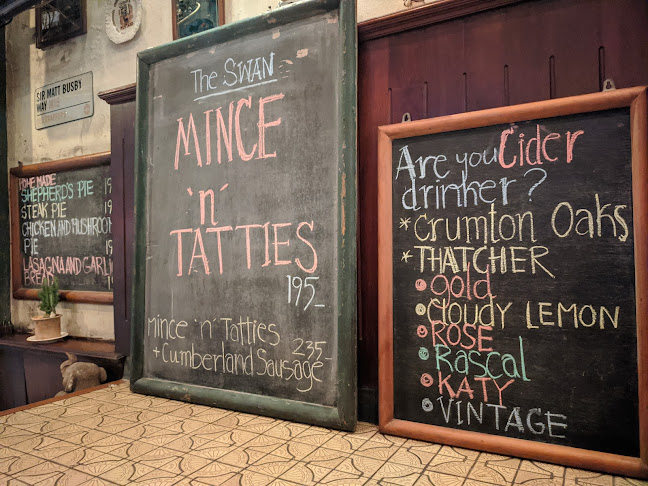 SIR MATT BUSBY
WAY
HOME MADE
SHEPHERD'S PIE
STEAK PIE
CHICKEN AND MUSHROOM
PIE
LASAGNA AND GARLIC
BREAD
The SWAN
MINCE
'n'
TATTIES
195_
Mince 'n' Tatties
+ Cumberland Sausage 235_
Are you Cider
drinker?
* Crumton Oaks
* THATCHER
gold
CLOUDY LEMON
ROSE
Rascal
KATY
VINTAGE